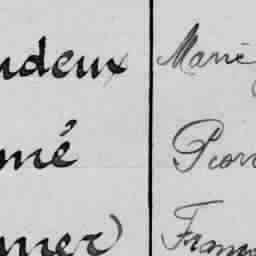 udeux Marie
mé Pierr
mer Franço